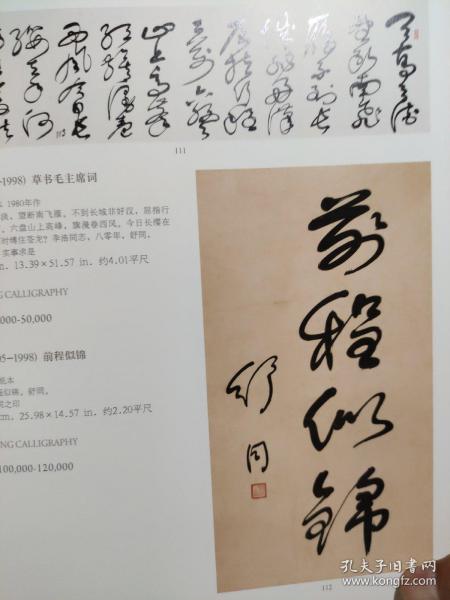 天高云淡
望断南飞
雁不到长
城非好汉
屈指行程
二万六盘
山上高峰
红旗漫卷
西风今日长
缨在手何
111
-1998) 草书毛主席词
1980年作
淡，望断南飞雁。不到长城非好汉，屈指行
，六盘山上高峰，旗漫卷西风。今日长缨在
时缚住苍龙？李浩同志，八零年，舒同。
实事求是
m. 13.39×51.57 in. 约4.01平尺
NG CALLIGRAPHY
,000-50,000
05-1998) 前程似锦
纸本
似锦。舒同。
同之印
cm. 25.98×14.57 in. 约2.20平尺
NG CALLIGRAPHY
100,000-120,000
前程似锦
舒同
112
孔夫子旧书网
www.kongfz.com